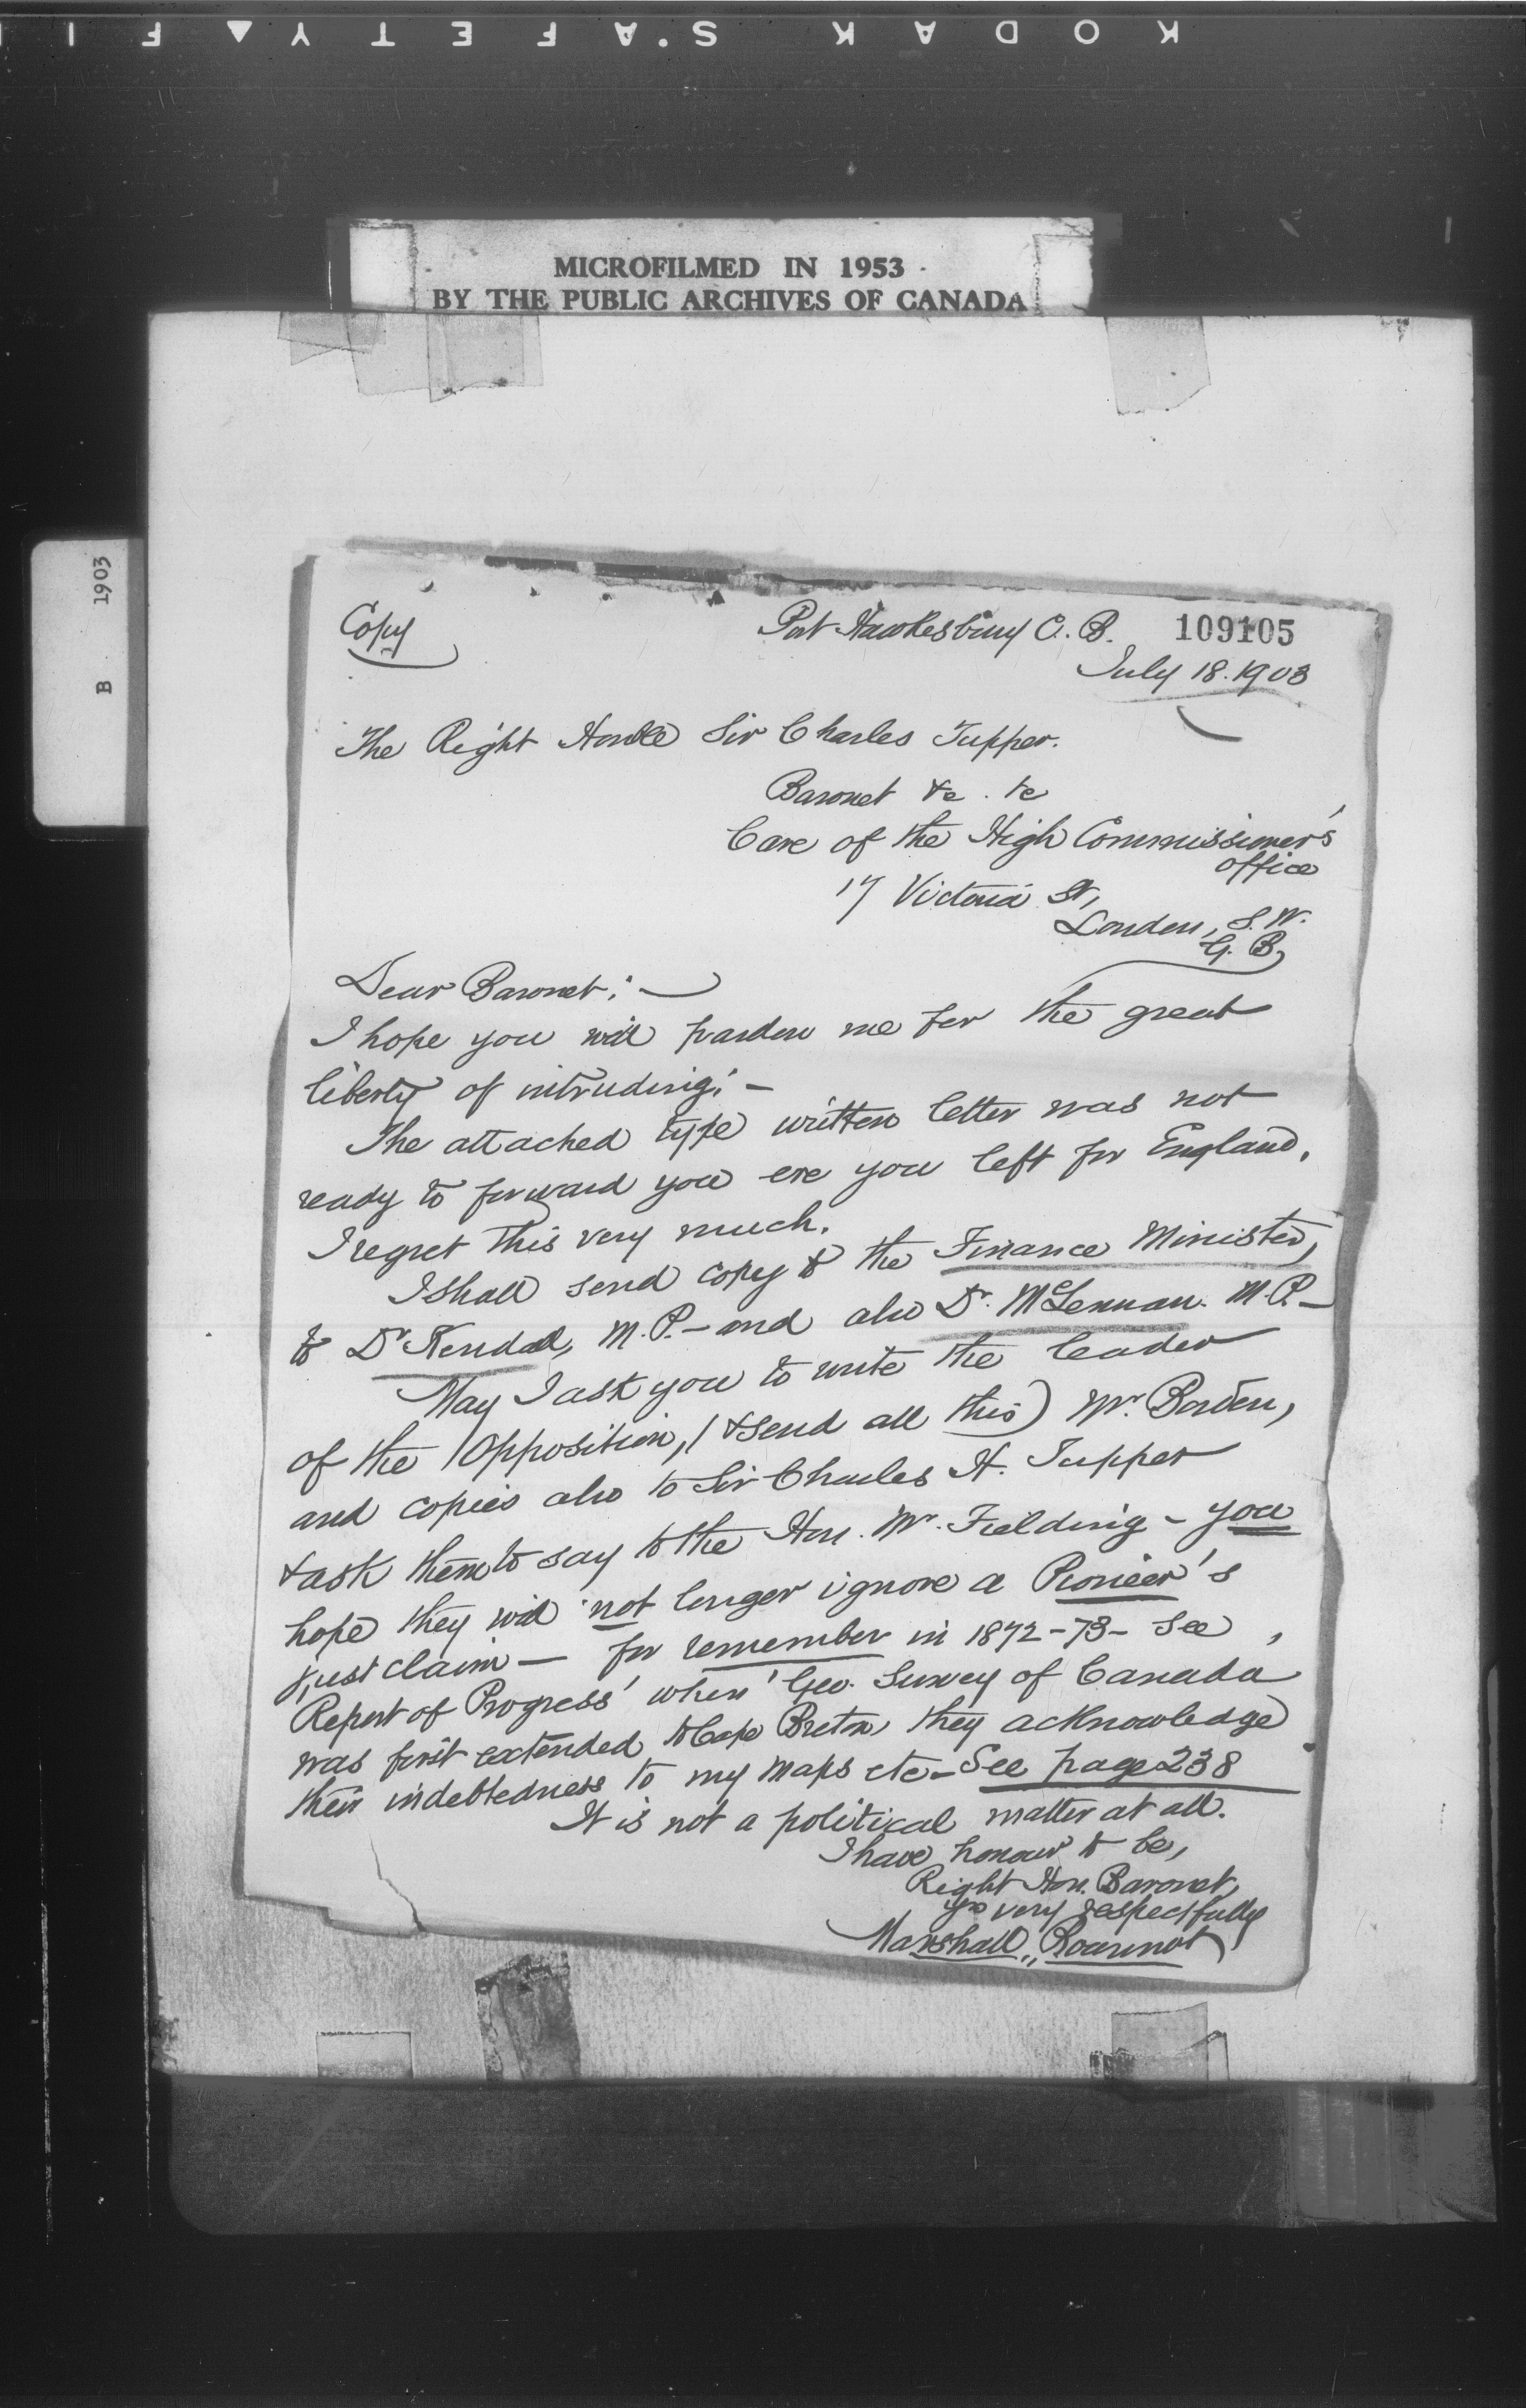 KODAK S'AFETY ▲ FI
MICROFILMED IN 1953
BY THE PUBLIC ARCHIVES OF CANADA
B 1903
Copy
Port Hawkesbury C. B. 109105
July 18. 1903
The Right Honble Sir Charles Tupper.
Baronet &c. &c
Care of the High Commissioner's
office
17 Victoria St,
London, S. W.
G. B,
Dear Baronet: —
I hope you will pardon me for the great
liberty of intruding: —
The attached type written letter was not
ready to forward you ere you left for England.
I regret this very much.
I shall send copy to the Finance Minister,
to Dr Kendall, M. P. — and also Dr. McLennan. M. P. —
May I ask you to write the leader
of the Opposition, (& send all this) Mr. Borden,
and copies also to Sir Charles H. Tupper
& ask them to say to the Hon. Mr. Fielding — you
hope they will not longer ignore a Pioneer's
just claim — for remember in 1872-73 — see
'Report of Progress' when 'Geo. Survey of Canada'
was first extended to Cape Breton, they acknowledge
their indebtedness to my maps etc — See page 238
It is not a political matter at all.
I have honour to be,
Right Hon. Baronet,
yrs very respectfully
Marshall Bourinot